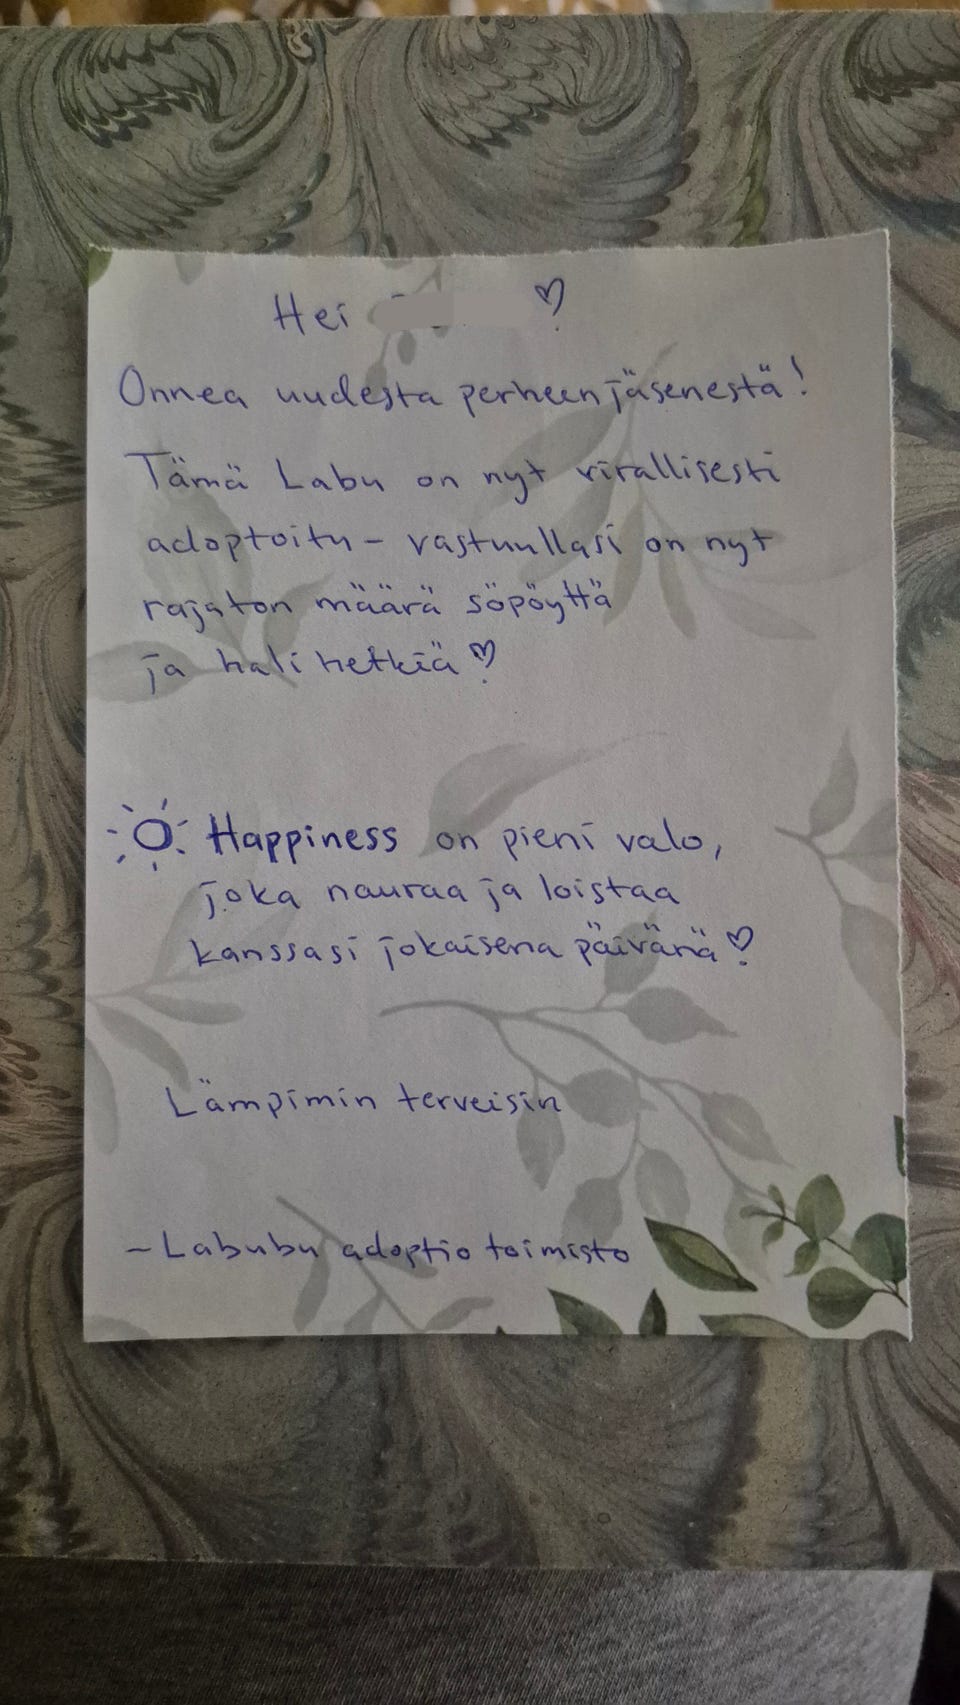 Hei ♡
Onnea uudesta perheenjäsenestä!
Tämä Labu on nyt virallisesti
adoptoitu – vastuullasi on nyt
rajaton määrä söpöyttä
ja hali hetkiä ♡
Happiness on pieni valo,
joka nauraa ja loistaa
kanssasi jokaisena päivänä ♡
Lämpimin terveisin
– Labubu adoptio toimisto